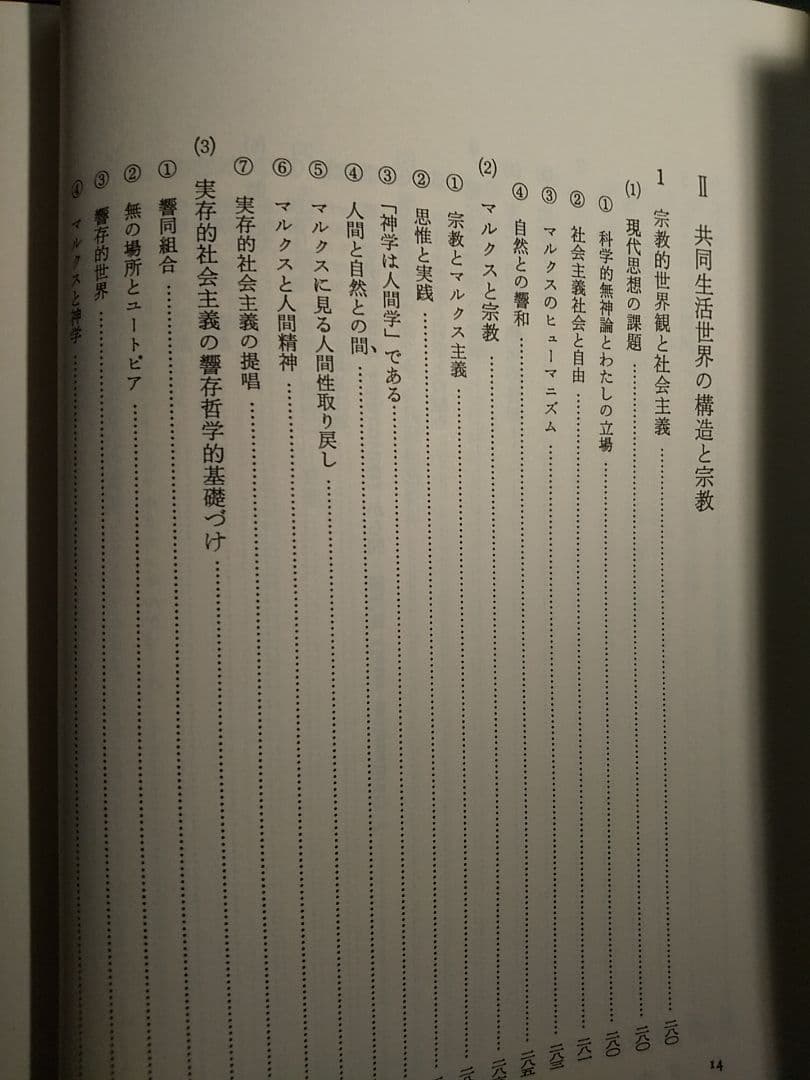 Ⅱ 共同生活世界の構造と宗教
1 宗教的世界観と社会主義……二八〇
(1) 現代思想の課題……二八〇
① 科学的無神論とわたしの立場……二八〇
② 社会主義社会と自由……二八一
③ マルクスのヒューマニズム……二八三
④ 自然との響和……二八五
(2) マルクスと宗教……
① 宗教とマルクス主義……
② 思惟と実践……
③ 「神学は人間学」である……
④ 人間と自然との間、……
⑤ マルクスに見る人間性取り戻し……
⑥ マルクスと人間精神……
⑦ 実存的社会主義の提唱……
(3) 実存的社会主義の響存哲学的基礎づけ……
① 響同組合……
② 無の場所とユートピア……
③ 響存的世界……
④ マルクスと神学……
14